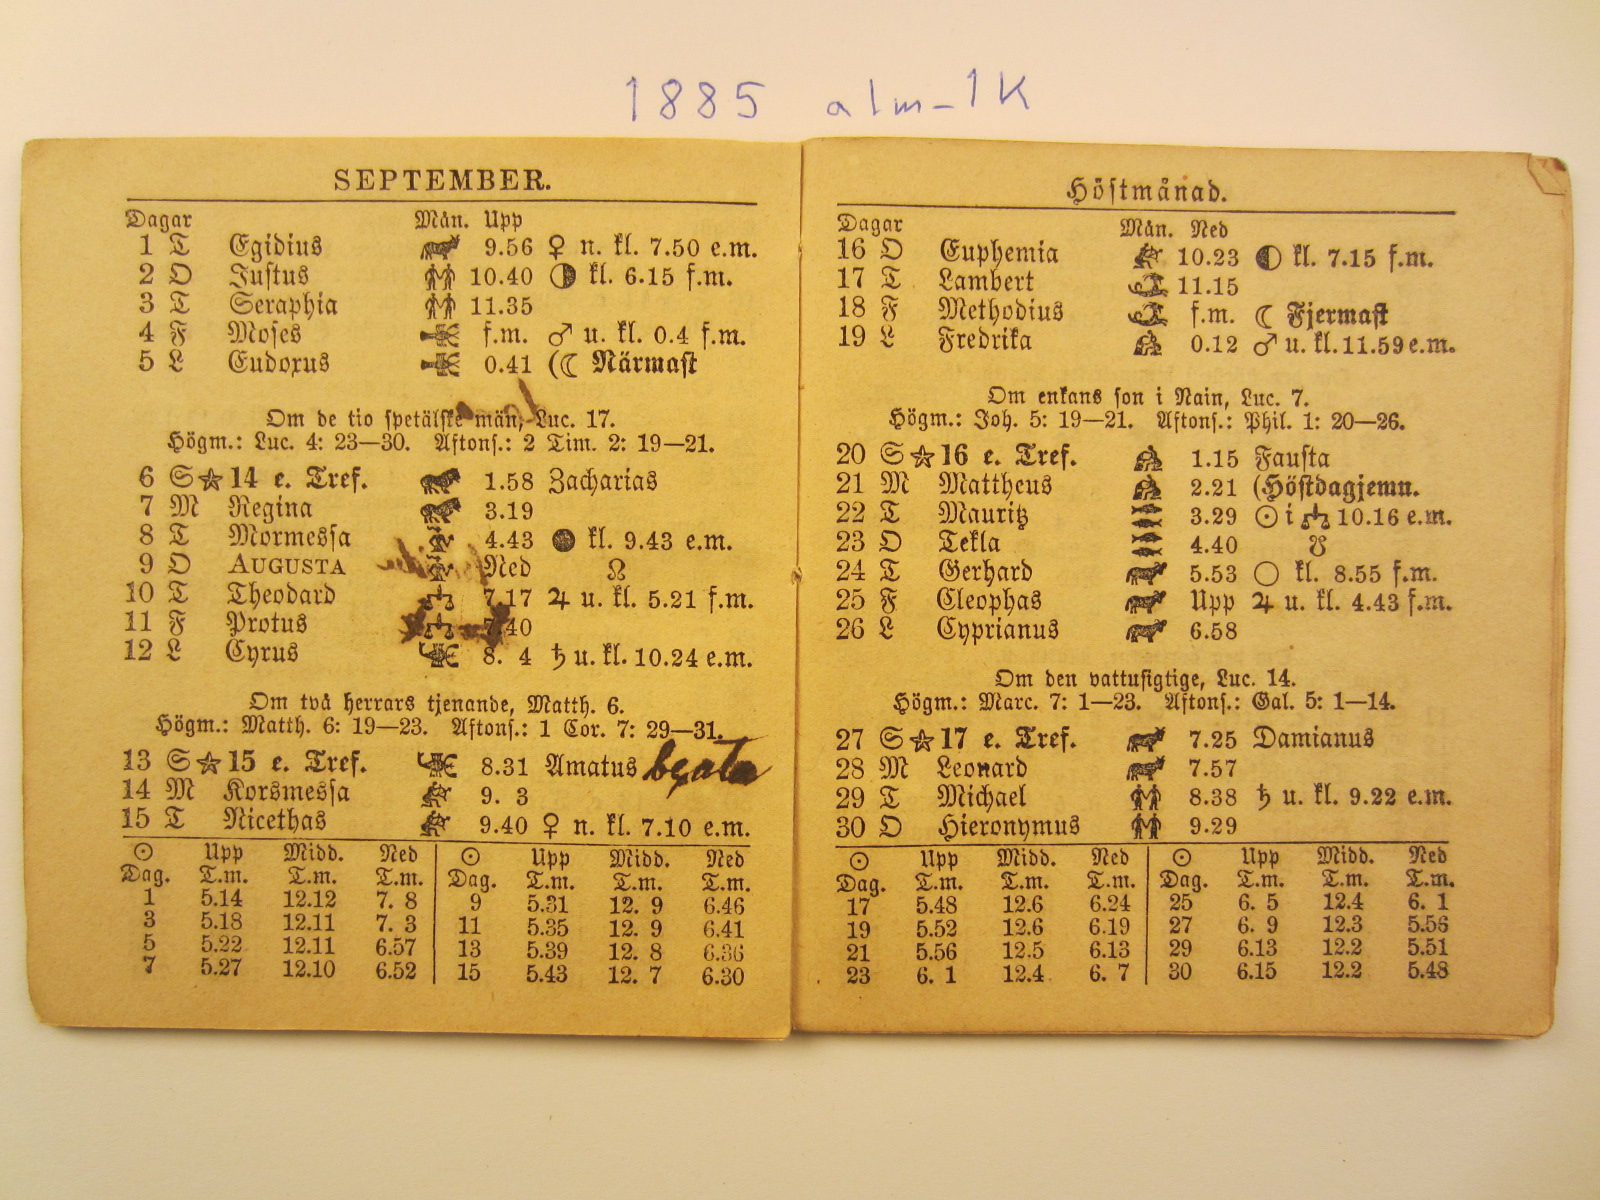 1885 alm-1K
SEPTEMBER.
Dagar Mån. Upp
1 T Egidius 9.56 ♀ n. kl. 7.50 e.m.
2 O Justus 10.40 ◑ kl. 6.15 f.m.
3 T Seraphia 11.35
4 F Moses f.m. ♂ u. kl. 0.4 f.m.
5 L Eudoxus 0.41 (☾ Närmast
Om de tio spetälske män, Luc. 17.
Högm.: Luc. 4: 23—30. Aftons.: 2 Tim. 2: 19—21.
6 S ☆ 14 e. Tref. 1.58 Zacharias
7 M Regina 3.19
8 T Mormessa 4.43 ● kl. 9.43 e.m.
9 O AUGUSTA Ned ☊
10 T Theodard 7.17 ♃ u. kl. 5.21 f.m.
11 F Protus 7.40
12 L Cyrus 8. 4 ♄ u. kl. 10.24 e.m.
Om två herrars tjenande, Matth. 6.
Högm.: Matth. 6: 19—23. Aftons.: 1 Cor. 7: 29—31.
13 S ☆ 15 e. Tref. 8.31 Amatus beata
14 M Korsmessa 9. 3
15 T Nicethas 9.40 ♀ n. kl. 7.10 e.m.
☉ Upp Midd. Ned ☉ Upp Midd. Ned
Dag. T.m. T.m. T.m. Dag. T.m. T.m. T.m.
1 5.14 12.12 7. 8 9 5.31 12. 9 6.46
3 5.18 12.11 7. 3 11 5.35 12. 9 6.41
5 5.22 12.11 6.57 13 5.39 12. 8 6.36
7 5.27 12.10 6.52 15 5.43 12. 7 6.30
Höstmånad.
Dagar Mån. Ned
16 O Euphemia 10.23 ◐ kl. 7.15 f.m.
17 T Lambert 11.15
18 F Methodius f.m. ☾ Fjermast
19 L Fredrika 0.12 ♂ u. kl. 11.59 e.m.
Om enkans son i Nain, Luc. 7.
Högm.: Joh. 5: 19—21. Aftons.: Phil. 1: 20—26.
20 S ☆ 16 e. Tref. 1.15 Fausta
21 M Mattheus 2.21 (Höstdagjemn.
22 T Mauritz 3.29 ☉ i ♎ 10.16 e.m.
23 O Tekla 4.40 ☋
24 T Gerhard 5.53 ○ kl. 8.55 f.m.
25 F Cleophas Upp ♃ u. kl. 4.43 f.m.
26 L Cyprianus 6.58
Om den vattusigtige, Luc. 14.
Högm.: Marc. 7: 1—23. Aftons.: Gal. 5: 1—14.
27 S ☆ 17 e. Tref. 7.25 Damianus
28 M Leonard 7.57
29 T Michael 8.38 ♄ u. kl. 9.22 e.m.
30 O Hieronymus 9.29
☉ Upp Midd. Ned ☉ Upp Midd. Ned
Dag. T.m. T.m. T.m. Dag. T.m. T.m. T.m.
17 5.48 12.6 6.24 25 6. 5 12.4 6. 1
19 5.52 12.6 6.19 27 6. 9 12.3 5.56
21 5.56 12.5 6.13 29 6.13 12.2 5.51
23 6. 1 12.4 6. 7 30 6.15 12.2 5.48